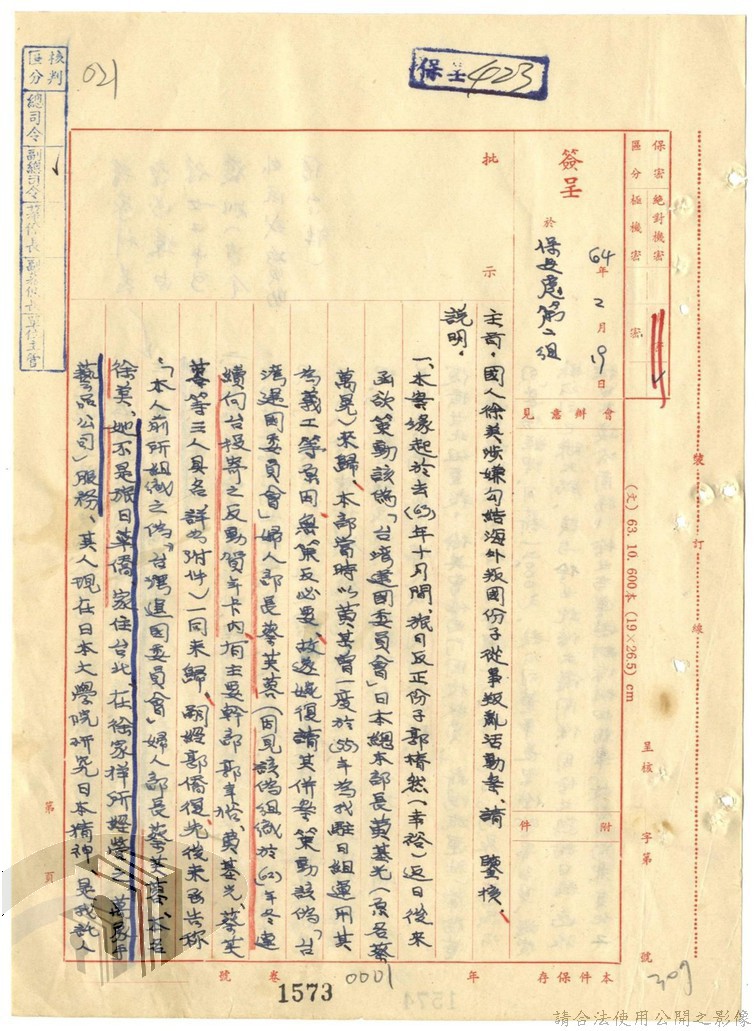 保安 423
021
核判區分
總司令
副總司令
保密區分
絕對機密
極機密
機密
密
裝訂線
(文) 63. 10. 600本 (19×26.5) cm
簽呈
於
64年2月19日
保安處第二組
會辦意見
附件
呈核 字第 號
309
批示
主旨:國人徐美涉嫌勾結海外叛國份子從事叛亂活動案,請 鑒核。
說明:
一、本案緣起於去(63)年十月間,旅日反正份子郭精然(韋裕)返日後來
函欲策動該偽「台灣建國委員會」日本總本部長黃基光(原名蔡
萬見)來歸,本部當時以黃某曾一度於(55)年為我駐日組運用其
為義工等原因無策反必要,故遂婉復請其併案策動該偽「台
灣建國委員會」婦人部長蔡芙蓉(因見該偽組織於(62)年冬連
續向台投寄之反動賀年卡內有主要幹部郭韋裕、黃基光、蔡芙
蓉等三人具名詳如附件)一同來歸,嗣經郭僑復先後來函告稱
「本人前所組織之偽「台灣建國委員會」婦人部長蔡芙蓉,本名
徐美,她不是旅日華僑,家住台北,在徐家祥所經營之「萬家手
藝品公司」服務,其人現在日本大學院研究日本精神,是我託人
第 頁
本件保存 年
0001
卷 號
1573
請合法使用公開之影像